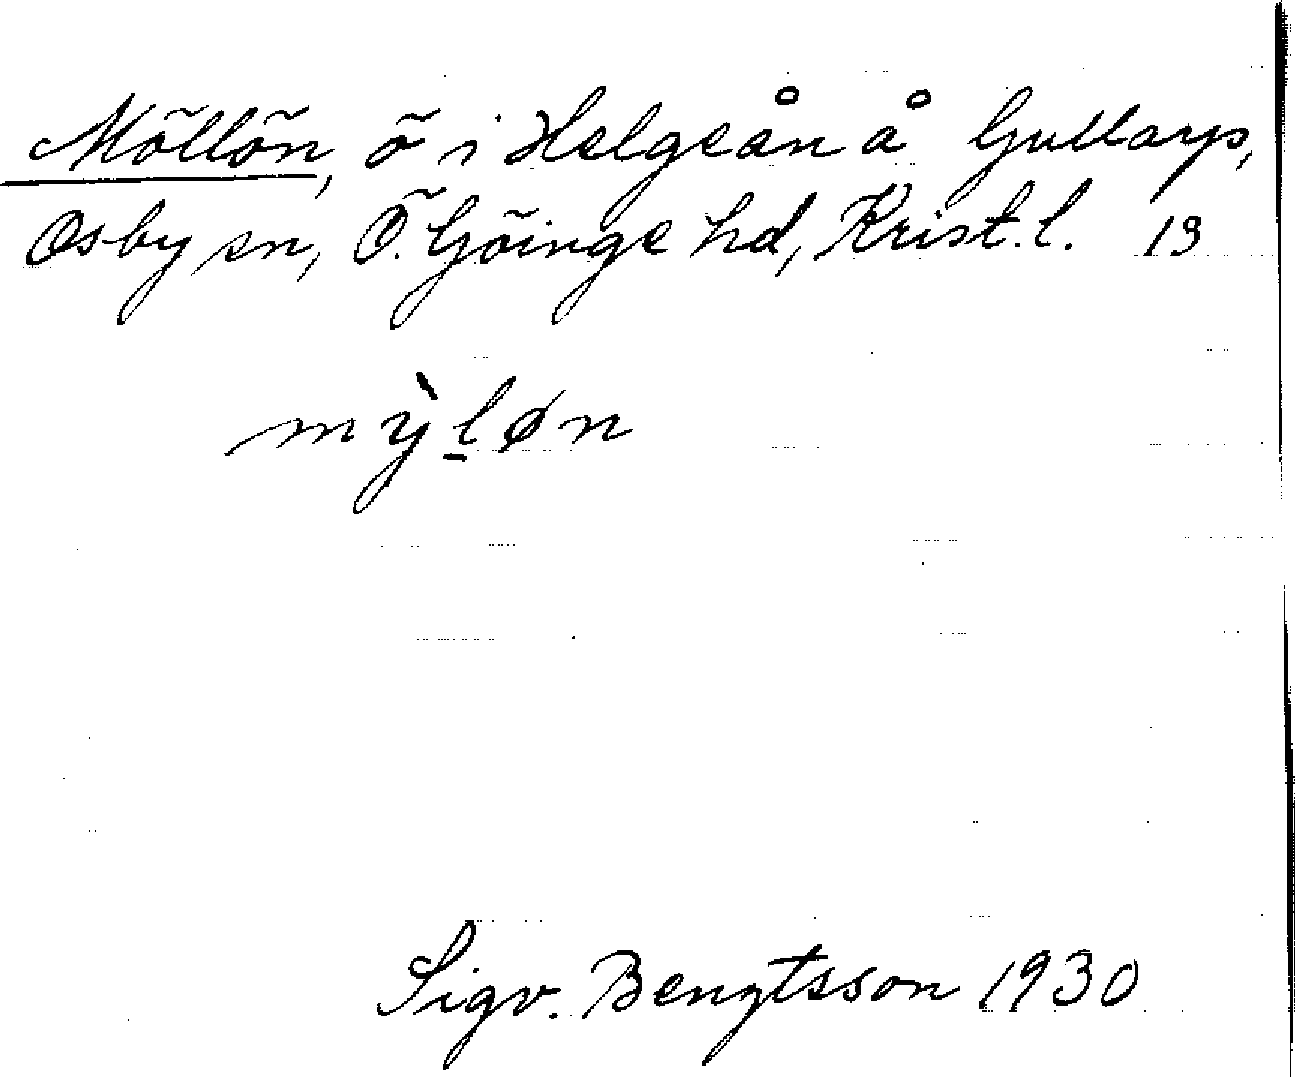 Möllön, ö i Helgeån å Gullarp,
Osby sn, Ö. Göinge hd, Krist.l. 19
mỳl̲øn
Sigv. Bengtsson 1930